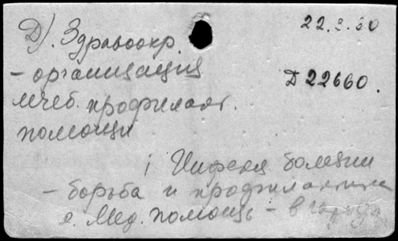 22.3.60
Д). Здравоохр.
- организация
Д 22660.
лечеб. профилакт.
помощи
i Инфекц болезни
- борьба и профилактика
е. Мед. помощь - в городе